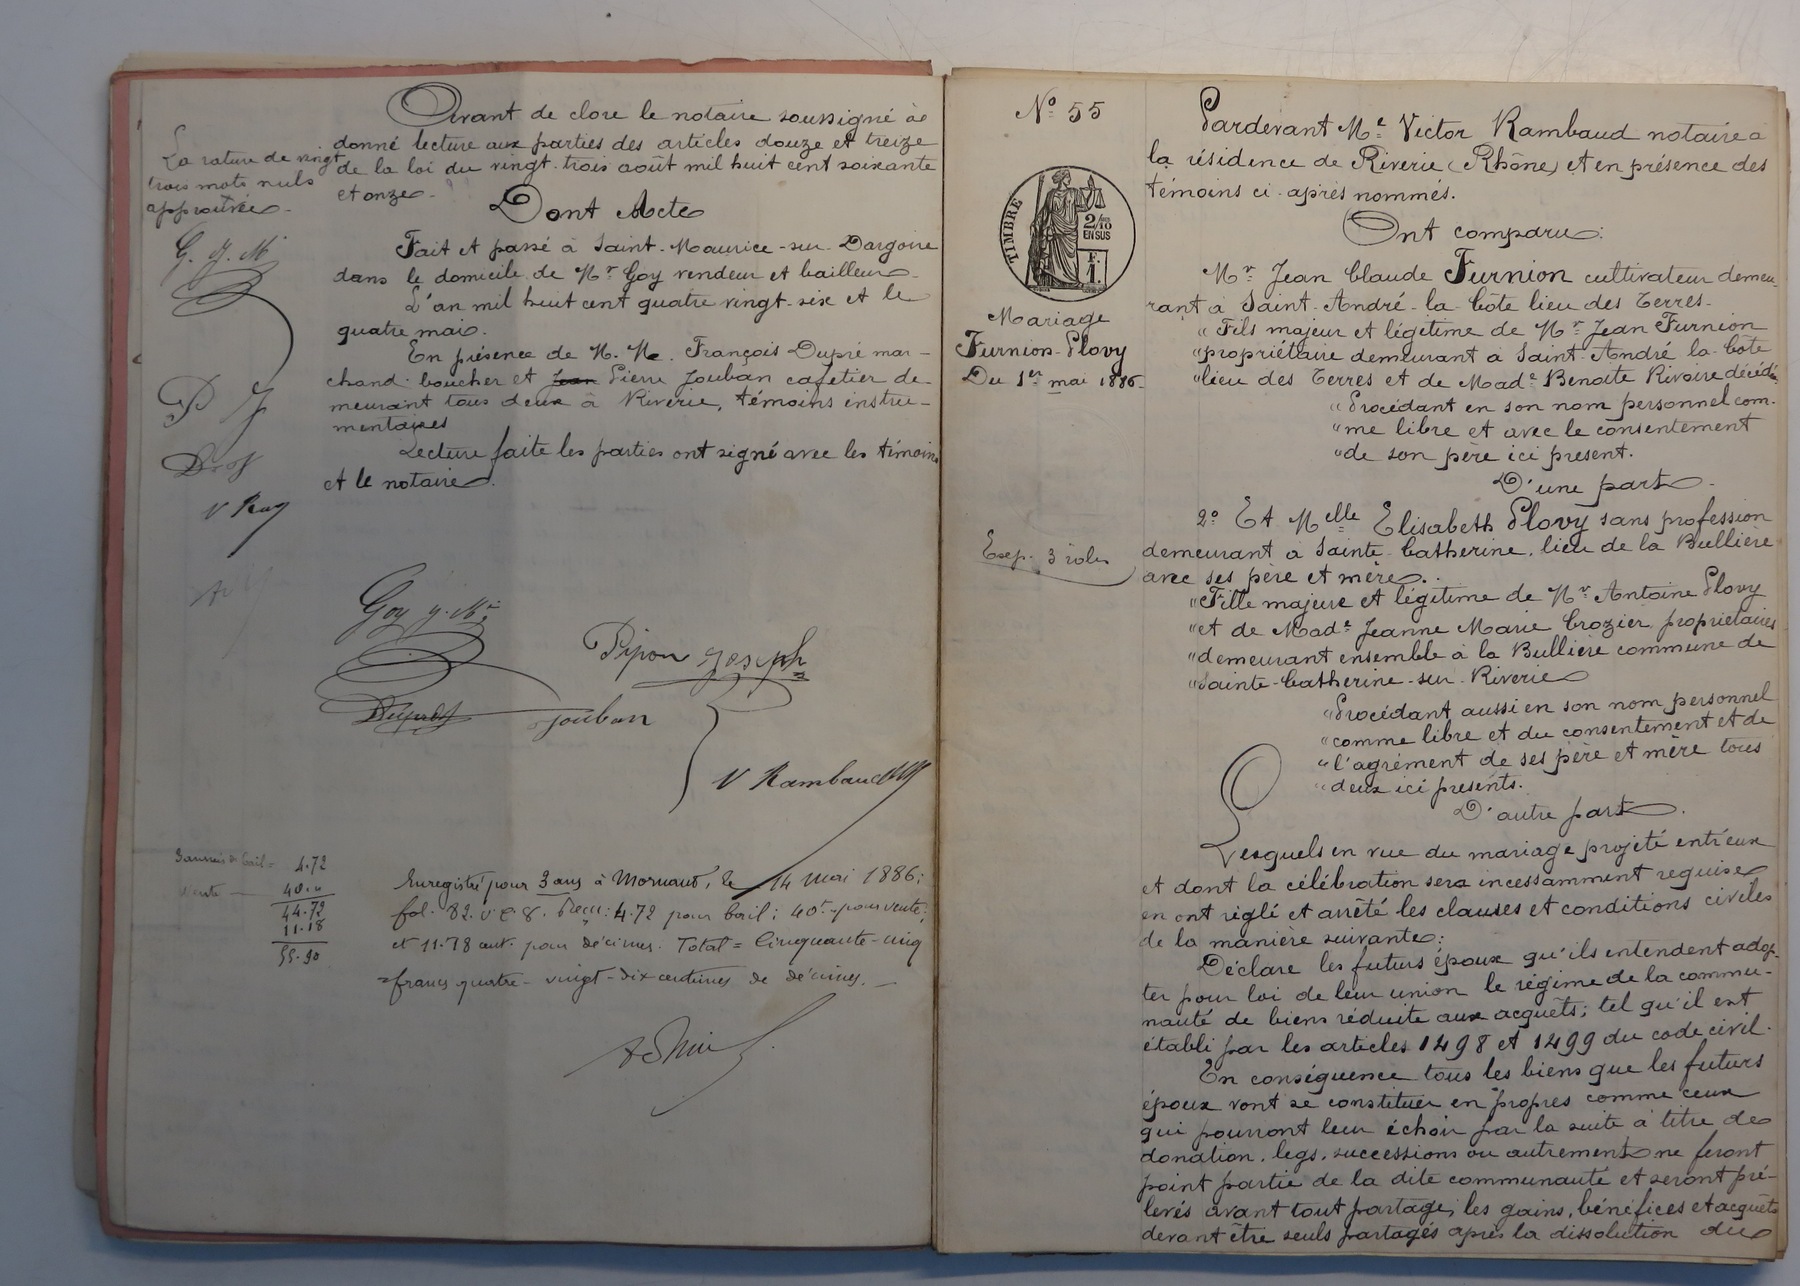 Avant de clore le notaire soussigné a
donné lecture aux parties des articles douze et treize
de la loi du vingt-trois août mil huit cent soixante
et onze.
La rature de vingt
trois mots nuls
approuvée.
Dont Acte
Fait et passé à Saint-Maurice-sur-Dargoire
dans le domicile de Mr Goy vendeur et bailleur.
L'an mil huit cent quatre vingt-six et le
quatre mai.
En présence de M.M. François Dupré mar-
chand-boucher et Jean Pierre Jouban cafetier de-
meurant tous deux à Riverie, témoins instru-
mentaires
Lecture faite les parties ont signé avec les témoins
et le notaire.
G. J. M
P J
V Ra
Goy J. M.
Pipon Joseph
Jouban
V Rambaud
3 années de bail = 4.72
Vente — 40.»
44.72
11.18
55.90
Enregistré pour 3 ans à Mornant, le 14 mai 1886;
fol. 82. v. c. 8. Reçu: 4.72 pour bail; 40f pour vente;
et 11.18 cent. pour décimes. Total = Cinquante-cinq
francs quatre-vingt-dix centimes de décimes.
N° 55
TIMBRE
2/10
EN SUS
F.
1.
Mariage
Furnion-Plovy
Du 1er mai 1886.
Exp. 3 roles
Pardevant Me Victor Rambaud notaire à
la résidence de Riverie (Rhône) et en présence des
témoins ci-après nommés.
Ont comparu:
Mr Jean Claude Furnion cultivateur demeu-
rant à Saint-André-la-Côte lieu des Terres.
"Fils majeur et légitime de Mr Jean Furnion
"propriétaire demeurant à Saint-André la-Côte
"lieu des Terres et de Made Benoite Rivoire décédée
"Procédant en son nom personnel com-
"me libre et avec le consentement
"de son père ici présent.
D'une part.
2° Et Melle Elisabeth Plovy sans profession
demeurant à Sainte-Catherine, lieu de la Bullière
avec ses père et mère.
"Fille majeure et légitime de Mr Antoine Plovy
"et de Made Jeanne Marie Crozier, propriétaires
"demeurant ensemble à la Bullière commune de
"Sainte-Catherine-sur-Riverie
"Procédant aussi en son nom personnel
"comme libre et du consentement et de
"l'agrément de ses père et mère tous
"deux ici présents.
D'autre part.
Lesquels en vue du mariage projeté entr'eux
et dont la célébration sera incessamment requise
en ont réglé et arrêté les clauses et conditions civiles
de la manière suivante:
Déclare les futurs époux qu'ils entendent adop-
ter pour loi de leur union le régime de la commu-
nauté de biens réduite aux acquêts; tel qu'il est
établi par les articles 1498 et 1499 du code civil.
En conséquence tous les biens que les futurs
époux vont se constituer en propres comme ceux
qui pourront leur échoir par la suite à titre de
donation, legs, successions ou autrement ne feront
point partie de la dite communauté et seront pré-
levés avant tout partage, les gains, bénéfices et acquêts
devant être seuls partagés après la dissolution du